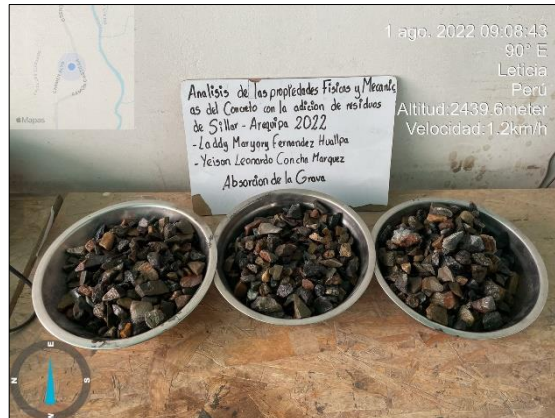 1 ago. 2022 09:08:43
90° E
Leticia
Perú
Altitud:2439.6meter
Velocidad:1.2km/h
Mapas
Analisis de las propiedades Fisicas y Mecanic
as del Concreto con la adicion de residuos
de Sillar - Arequipa 2022
-Laddy Maryory Fernandez Huallpa
-Yeison Leonardo Concha Marquez
Absorcion de la Grava
N
E
S